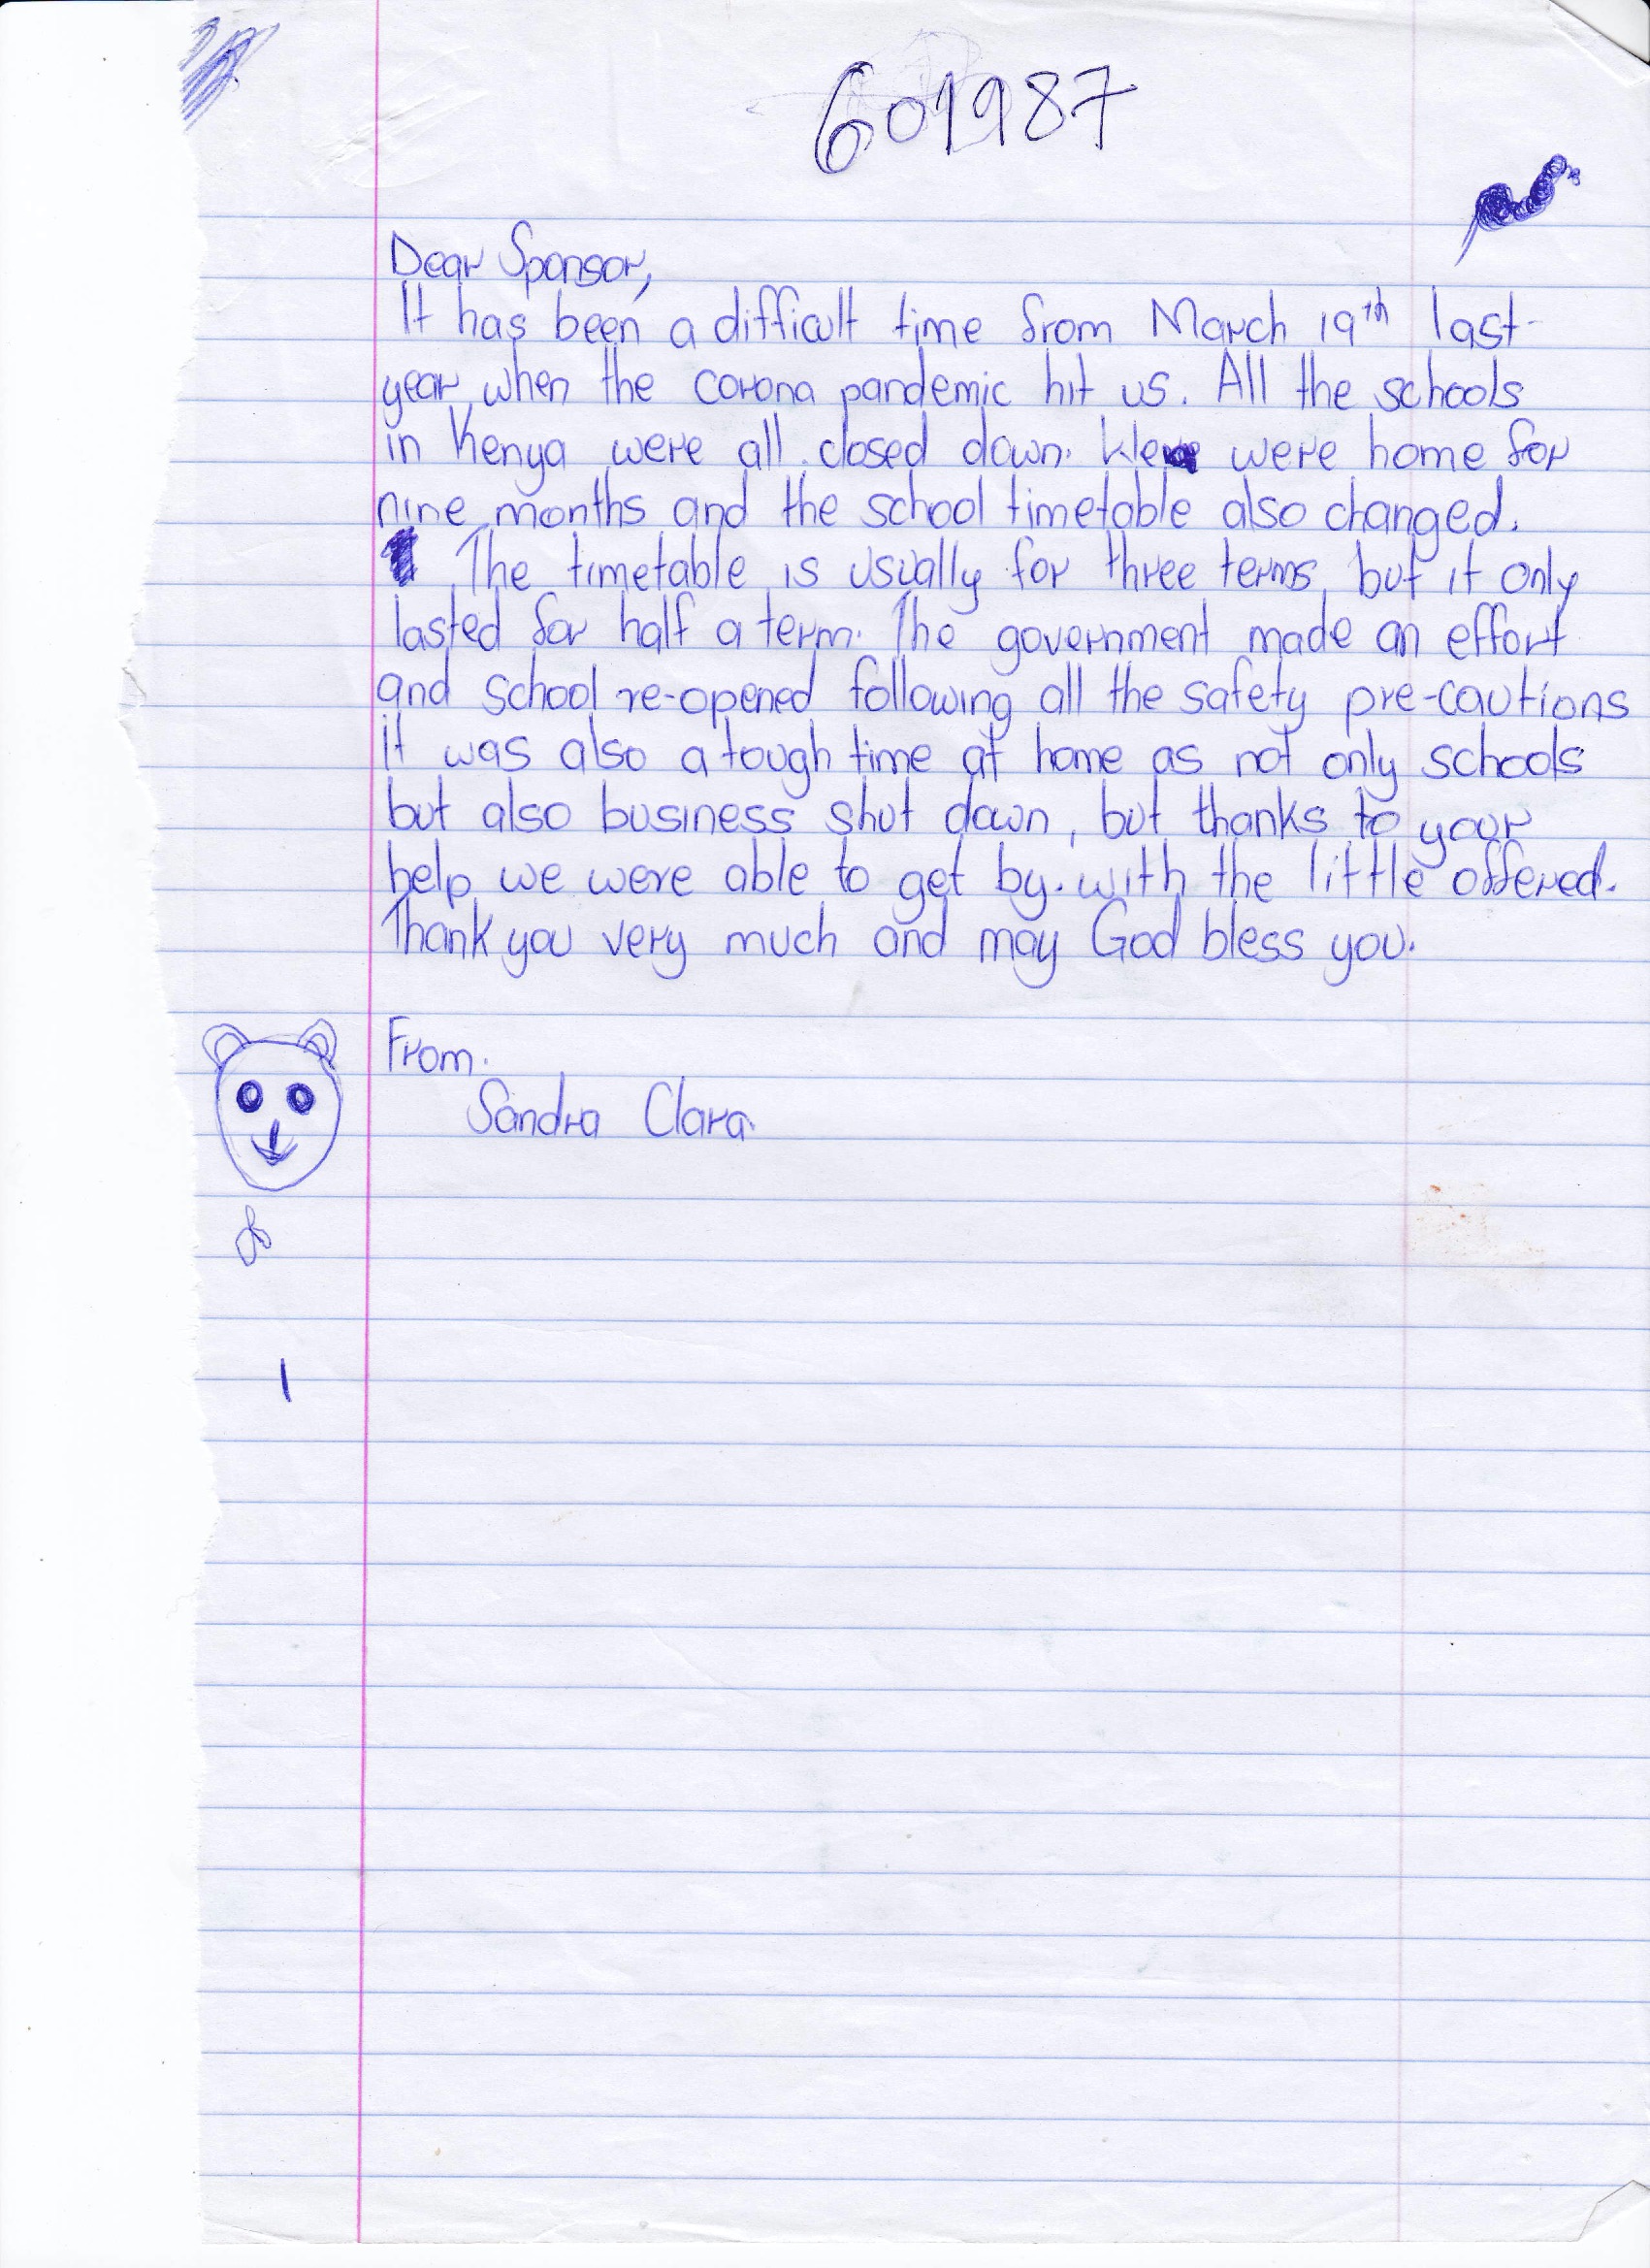 601987
Dear Sponsor,
It has been a difficult time from March 19th last
year when the corona pandemic hit us. All the schools
in Kenya were all closed down. We were home for
nine months and the school timetable also changed.
The timetable is usually for three terms, but it only
lasted for half a term. The government made an effort
and school re-opened following all the safety pre-cautions
it was also a tough time at home as not only schools
but also business shut down, but thanks to your
help we were able to get by. with the little offered.
Thank you very much and may God bless you.
From.
Sandra Clara.